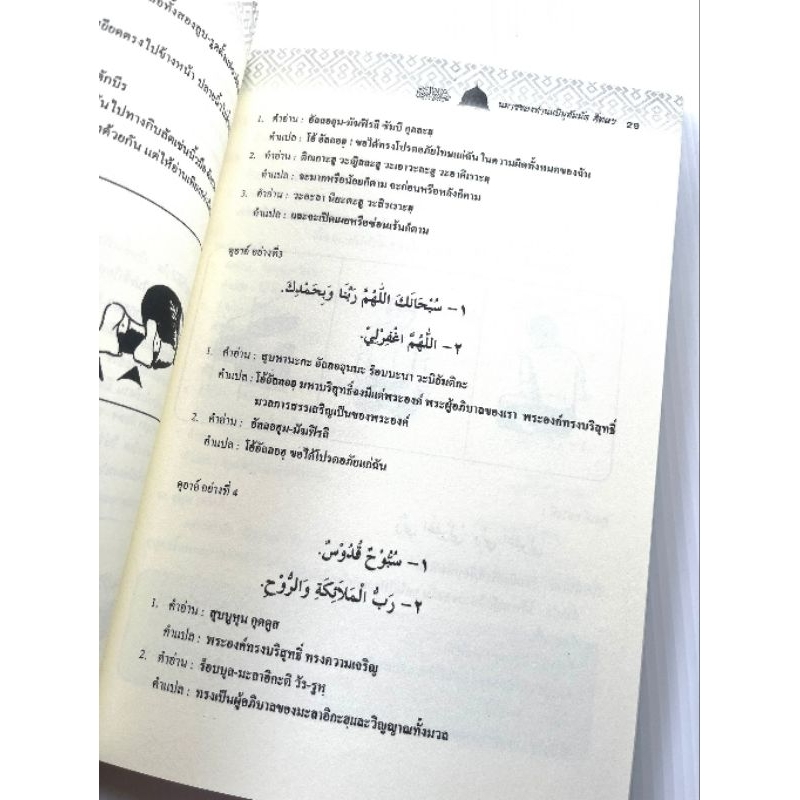 อยืดตรงไปข้างหน้า
ักบีร
ด้วยกัน แต่ให้อ่านเพียง
นมาซของท่านนบีมุฮัมมัด 29
1. คำอ่าน : อัลลอฮุม-มัฆฟิรลี ซัมบี กุลละฮุ
คำแปล : โอ้ อัลลอฮฺ ! ขอได้ทรงโปรดอภัยโทษแก่ฉัน ในความผิดทั้งหมดของฉัน
2. คำอ่าน : ดิกเกาะฮู วะญิลละฮู วะเอาวะละฮู วะอาคิเราะฮู
คำแปล : จะมากหรือน้อยก็ตาม จะก่อนหรือหลังก็ตาม
3. คำอ่าน : วะอะลา นิยะตะฮู วะสิรเราะฮู
คำแปล : และจะเปิดเผยหรือซ่อนเร้นก็ตาม
ดุอาอ์ อย่างที่3
١- سُبْحَانَكَ اللَّهُمَّ رَبَّنَا وَبِحَمْدِكَ.
٢- اللَّهُمَّ اغْفِرْلِيْ.
1. คำอ่าน : สุบหานะกะ อัลลอฮุมมะ ร็อบบะนา วะบิฮัมดิกะ
คำแปล : โอ้อัลลอฮฺ มหาบริสุทธิ์ยิ่งมีแด่พระองค์ พระผู้อภิบาลของเรา พระองค์ทรงบริสุทธิ์
มวลการสรรเสริญเป็นของพระองค์
2. คำอ่าน : อัลลอฮุม-มัฆฟิรลี
คำแปล : โอ้อัลลอฮฺ ขอได้โปรดอภัยแก่ฉัน
ดุอาอ์ อย่างที่ 4
١- سُبُّوْحٌ قُدُّوْسٌ.
٢- رَبُّ الْمَلاَئِكَةِ وَالرُّوْحِ.
1. คำอ่าน : สุบบูหุน กุดดูส
คำแปล : พระองค์ทรงบริสุทธิ์ ทรงความเจริญ
2. คำอ่าน : ร็อบบุล-มะลาอิกะติ วัร-รูหฺ
คำแปล : ทรงเป็นผู้อภิบาลของมะลาอิกะฮฺและวิญญาณทั้งมวล